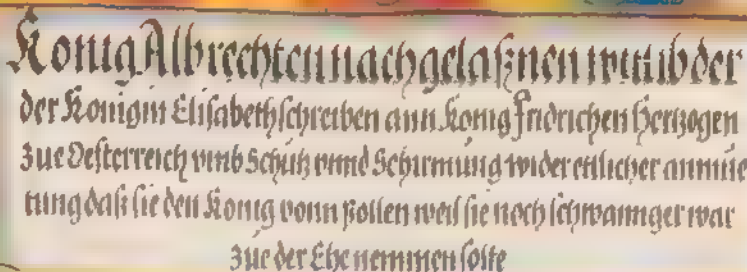 Konig Albrechten nachgelaßnen wittib der
der Konigin Elisabeth schreiben ann Konig Fridrichen Hertzogen
zue Oesterreich umb Schutz unnd Schirmung wider etlicher anmüe
tung daß sie den Konig vonn Pollen weil sie noch schwannger war
zue der Ehe nemmen solte